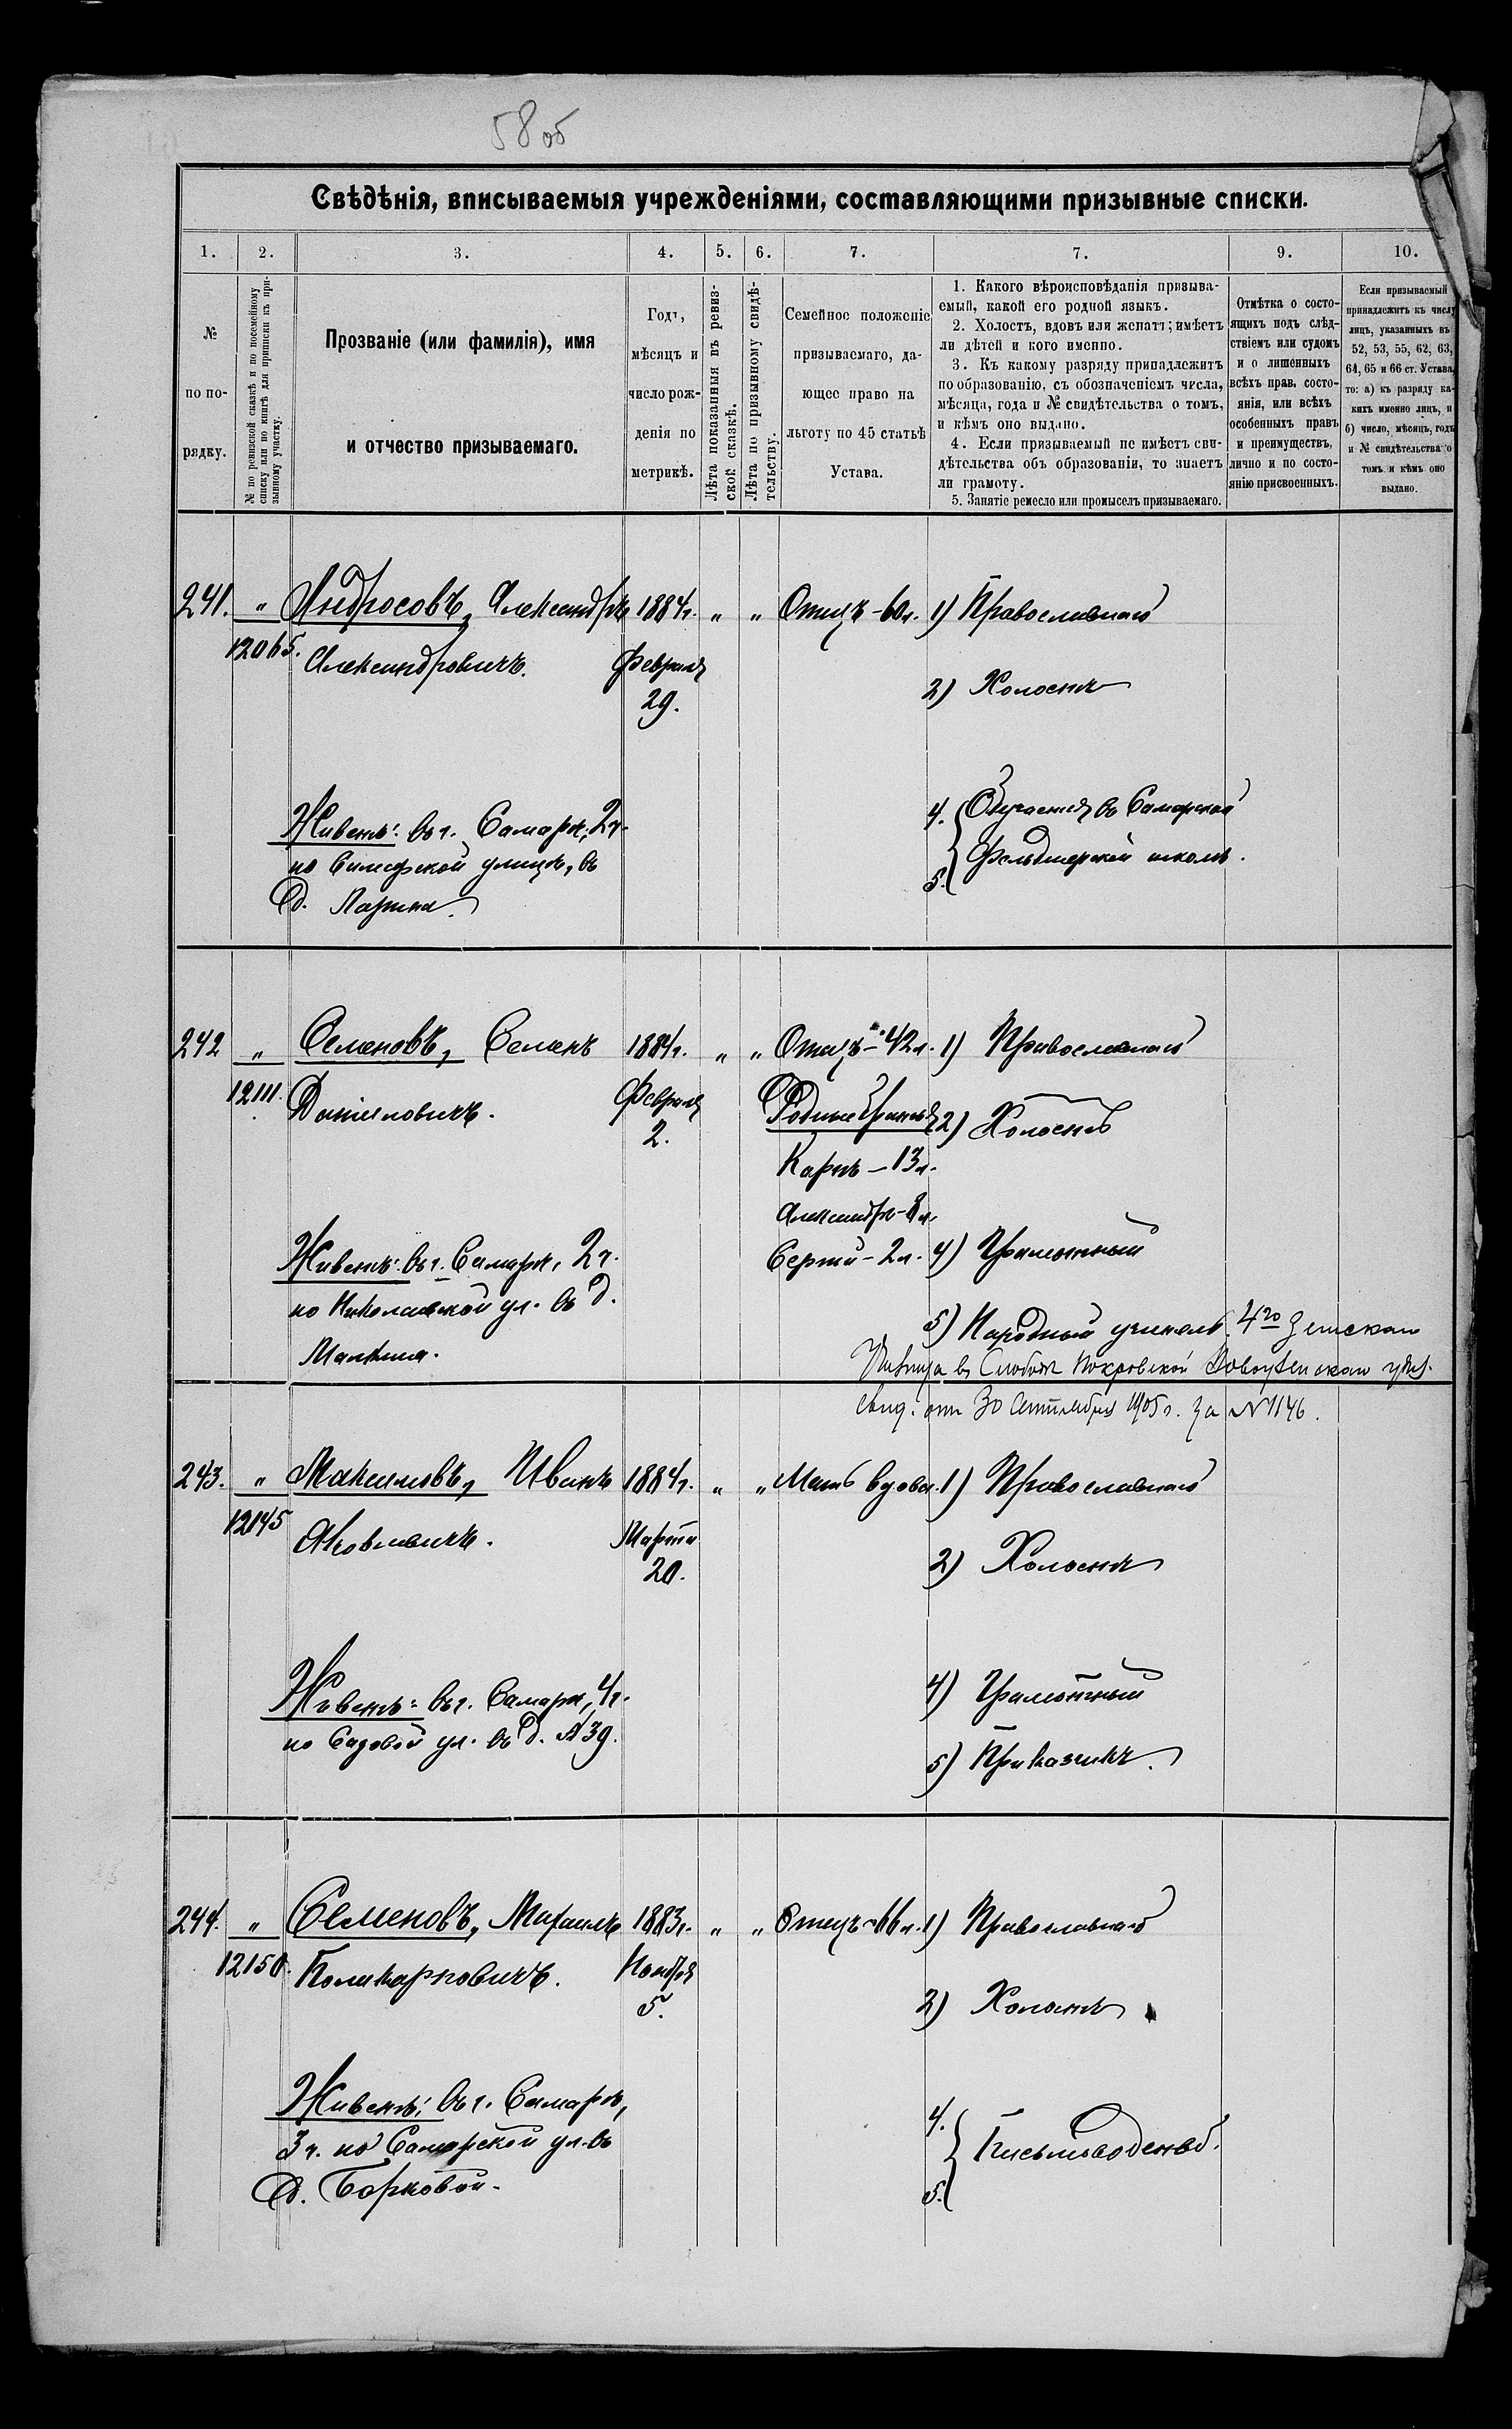 58 об
Свѣдѣнія, вписываемыя учрежденіями, составляющими призывные списки.
1. 2. 3. 4. 5. 6. 7. 7. 9. 10.
№
по по-
рядку.
№ по ревизской сказкѣ и по посемейному
списку или по книгѣ для приписки къ при-
зывному участку.
Прозваніе (или фамилія), имя
и отчество призываемаго.
Годъ,
мѣсяцъ и
число рож-
денія по
метрикѣ.
Лѣта показанныя въ ревиз-
ской сказкѣ.
Лѣта по призывному свидѣ-
тельству.
Семейное положеніе
призываемаго, да-
ющее право на
льготу по 45 статьѣ
Устава.
1. Какого вѣроисповѣданія призыва-
емый, какой его родной языкъ.
2. Холостъ, вдовъ или женатъ; имѣетъ
ли дѣтей и кого именно.
3. Къ какому разряду принадлежитъ
по образованію, съ обозначеніемъ числа,
мѣсяца, года и № свидѣтельства о томъ,
и кѣмъ оно выдано.
4. Если призываемый не имѣетъ сви-
дѣтельства объ образованіи, то знаетъ
ли грамоту.
5. Занятіе ремесло или промыселъ призываемаго.
Отмѣтка о состо-
ящихъ подъ слѣд-
ствіемъ или судомъ
и о лишенныхъ
всѣхъ прав. состо-
янія, или всѣхъ
особенныхъ правъ
и преимуществъ,
лично и по состо-
янію присвоенныхъ.
Если призываемый
принадлежитъ къ числу
лицъ, указанныхъ въ
52, 53, 55, 62, 63,
64, 65 и 66 ст. Устава,
то: а) къ разряду ка-
кихъ именно лицъ, и
б) число, мѣсяцъ, годъ
и № свидѣтельства о
томъ и кѣмъ оно
выдано.
241. " Андросовъ, Александръ 1884г. " " Отецъ - 60л. 1) Православнаго
12065. Александровичъ. Февраля
29.
2) Холостъ
Живетъ: въ г. Самарѣ, 2ч.
по Симбирской улицѣ, въ
д. Ларина.
4. Обучается въ Самарской
5. Фельдшерской школѣ.
242 " Семеновъ, Семенъ 1884г. " " Отецъ - 42л. 1) Православнаго
12111. Даниловичъ. Февраля
2.
Родные братья
2) Холостъ
Карпъ - 13л.
Александръ - 8л.
Сергѣй - 2л. 4) Грамотный
Живетъ: въ г. Самарѣ, 2ч.
по Николаевской ул. въ д.
Малкина.
5) Народный учитель. 4го Земскаго
Училища въ Слободѣ Покровской Новоузенскаго уѣзд.
свид. отъ 30 Сентября 1905 г. за № 1146.
243. " Максимовъ, Иванъ 1884г. " " Мать вдова. 1) Православнаго
12145 Яковлевичъ. Марта
20.
2) Холостъ
Живетъ: въ г. Самарѣ, 4ч.
по Садовой ул. въ д. № 39.
4) Грамотный
5) Приказчикъ.
244. " Семеновъ, Михаилъ 1883г. " " Отецъ - 66л. 1) Православнаго
12150. Поликарповичъ. Ноября
5.
2) Холостъ
Живетъ: въ г. Самарѣ,
3ч. по Самарской ул. въ
д. Борковой.
4.
5. Письмоводство.